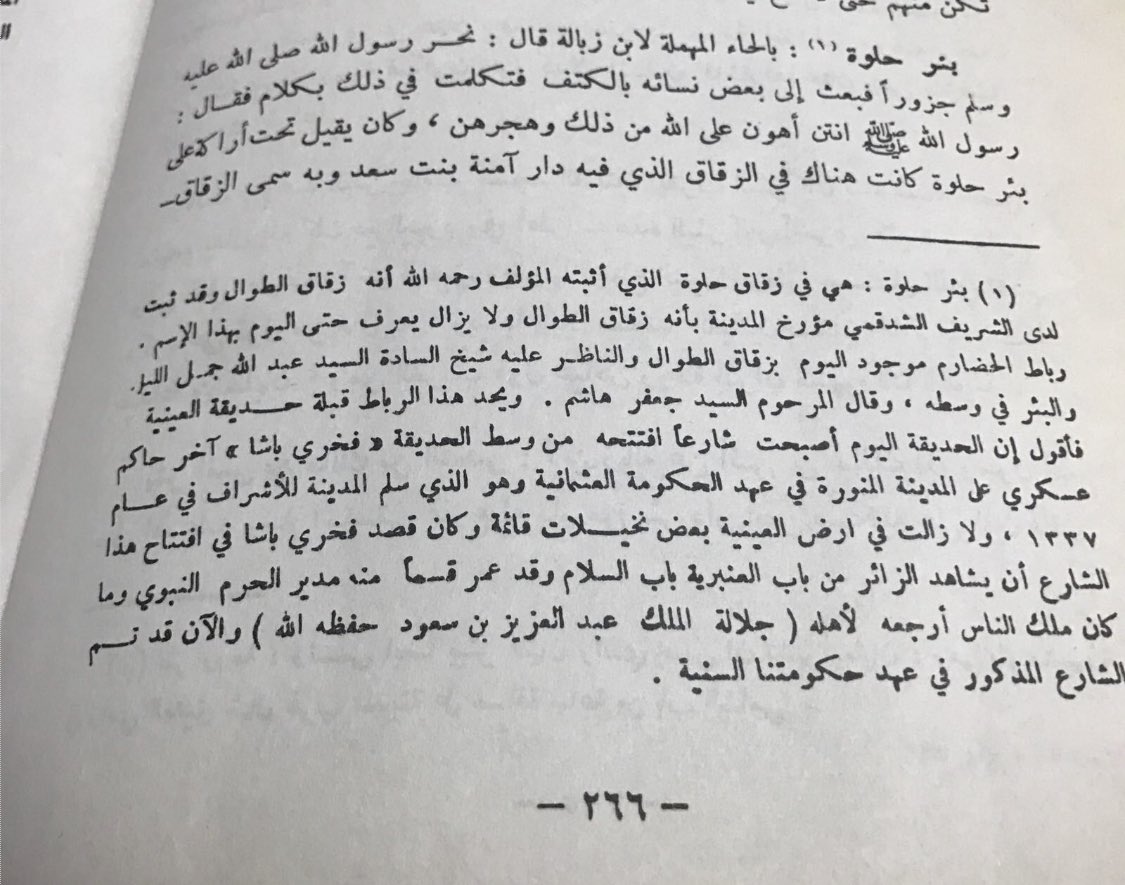 تكن منهم حتى
بئر حلوة (١) : بالحاء المهملة لابن زبالة قال : نحر رسول الله صلى الله عليه
وسلم جزوراً فبعث إلى بعض نسائه بالكتف فتكلمت في ذلك بكلام فقال :
رسول الله ﷺ انتن أهون على الله من ذلك وهجرهن ، وكان يقيل تحت أراكة على
بئر حلوة كانت هناك في الزقاق الذي فيه دار آمنة بنت سعد وبه سمى الزقاق_
(١) بئر حلوة : هي في زقاق حلوة الذي أثبته المؤلف رحمه الله أنه زقاق الطوال وقد ثبت
لدى الشريف الشدقمي مؤرخ المدينة بأنه زقاق الطوال ولا يزال يعرف حتى اليوم بهذا الإسم .
رباط الحضارم موجود اليوم بزقاق الطوال والناظر عليه شيخ السادة السيد عبد الله جمل الليل.
والبئر في وسطه ، وقال المرحوم السيد جعفر هاشم . ويحد هذا الرباط قبلة حديقة العينية
فأقول إن الحديقة اليوم أصبحت شارعاً افتتحه من وسط الحديقة « فخري باشا » آخر حاكم
عسكري على المدينة المنورة في عهد الحكومة العثمانية وهو الذي سلم المدينة للأشراف في عام
١٣٣٧ ، ولا زالت في ارض العينية بعض نخيلات قائمة وكان قصد فخري باشا في افتتاح هذا
الشارع أن يشاهد الزائر من باب العنبرية باب السلام وقد عمر قسماً منه مدير الحرم النبوي وما
كان ملك الناس أرجعه لأهله ( جلالة الملك عبد العزيز بن سعود حفظه الله ) والآن قد تم
الشارع المذكور في عهد حكومتنا السنية .
— ٢٦٦ —